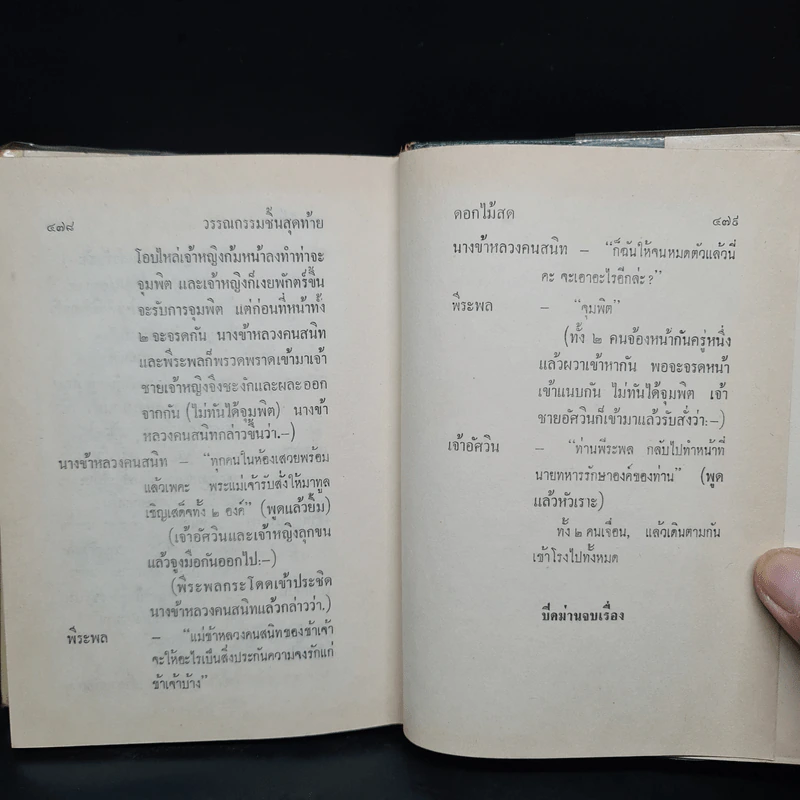 ๔๗๘ วรรณกรรมชิ้นสุดท้าย
โอบไหล่เจ้าหญิงก้มหน้าลงทำท่าจะ
จุมพิต และเจ้าหญิงก็เงยพักตร์ขึ้น
จะรับการจุมพิต แต่ก่อนที่หน้าทั้ง
๒ จะจรดกัน นางข้าหลวงคนสนิท
และพีระพลก็พรวดพราดเข้ามาเจ้า
ชายเจ้าหญิงจึงชะงักและผละออก
จากกัน (ไม่ทันได้จุมพิต) นางข้า
หลวงคนสนิทกล่าวขึ้นว่า.—)
นางข้าหลวงคนสนิท — "ทุกคนในห้องเสวยพร้อม
แล้วเพคะ พระแม่เจ้ารับสั่งให้มาทูล
เชิญเสด็จทั้ง ๒ องค์" (พูดแล้วยิ้ม)
(เจ้าอัศวินและเจ้าหญิงลุกขน
แล้วจูงมือกันออกไป:—)
(พีระพลกระโดดเข้าประชิด
นางข้าหลวงคนสนิทแล้วกล่าวว่า.)
พีระพล — "แม่ข้าหลวงคนสนิทของข้าเจ้า
จะให้อะไรเป็นสิ่งประกันความจงรักแก่
ข้าเจ้าบ้าง"
ดอกไม้สด ๔๗๙
นางข้าหลวงคนสนิท — "ก็ฉันให้จนหมดตัวแล้วนี่
คะ จะเอาอะไรอีกล่ะ?"
พีระพล — "จุมพิต"
(ทั้ง ๒ คนจ้องหน้ากันครู่หนึ่ง
แล้วผวาเข้าหากัน พอจะจรดหน้า
เข้าแนบกัน ไม่ทันได้จุมพิต เจ้า
ชายอัศวินก็เข้ามาแล้วรับสั่งว่า:—)
เจ้าอัศวิน — "ท่านพีระพล กลับไปทำหน้าที่
นายทหารรักษาองค์ของท่าน" (พูด
แล้วหัวเราะ)
ทั้ง ๒ คนเจื่อน, แล้วเดินตามกัน
เข้าโรงไปทั้งหมด
ปิดม่านจบเรื่อง